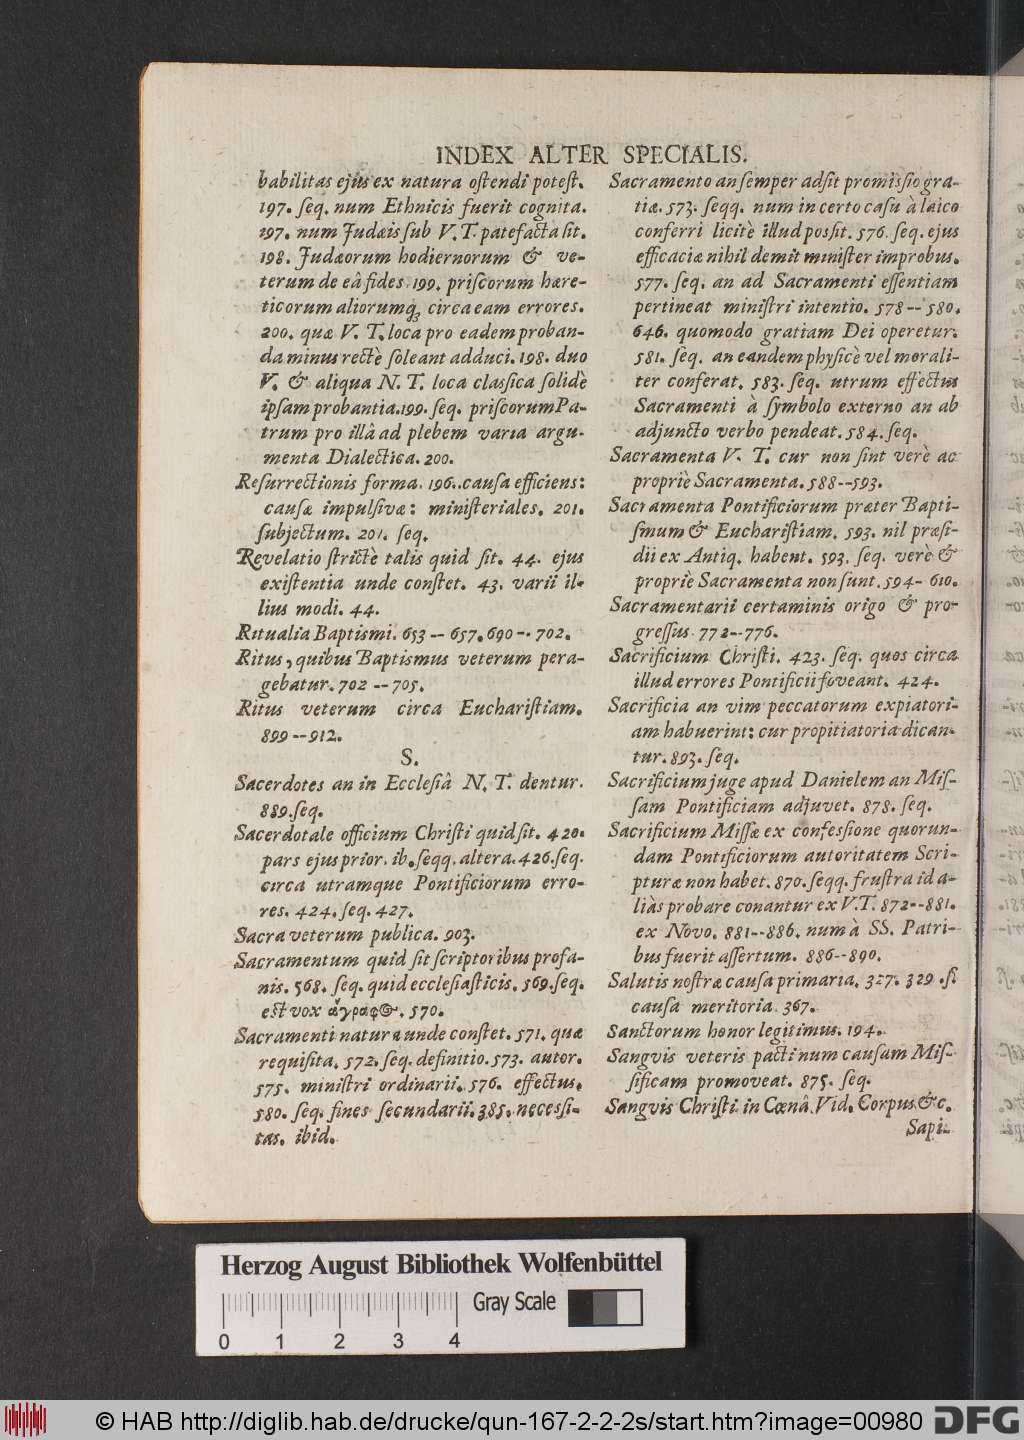 INDEX ALTER SPECIALIS.
babilitas ejus ex natura ostendi potest.
197. seq. num Ethnicis fuerit cognita.
197. num Judæis sub V. T. patefacta sit.
198. Judæorum hodiernorum & ve-
terum de eâ fides. 199. priscorum hære-
ticorum aliorumq́; circa eam errores.
200. quæ V. T. loca pro eadem proban-
da minus rectè soleant adduci. 198. duo
V. & aliqua N. T. loca classica solidè
ipsam probantia. 199. seq. priscorum Pa-
trum pro illâ ad plebem varia argu-
menta Dialectica. 200.
Resurrectionis forma. 196. causa efficiens:
causæ impulsivæ: ministeriales. 201.
subjectum. 201. seq.
Revelatio strictè talis quid sit. 44. ejus
existentia unde constet. 43. varii il-
lius modi. 44.
Ritualia Baptismi. 653 -- 657. 690 -- 702.
Ritus, quibus Baptismus veterum pera-
gebatur. 702 -- 705.
Ritus veterum circa Eucharistiam.
899 -- 912.
S.
Sacerdotes an in Ecclesiâ N. T. dentur.
889. seq.
Sacerdotale officium Christi quid sit. 420.
pars ejus prior. ib. seqq. altera. 426. seq.
circa utramque Pontificiorum erro-
res. 424. seq. 427.
Sacra veterum publica. 903.
Sacramentum quid sit scriptoribus profa-
nis. 568. seq. quid ecclesiasticis. 569. seq.
est vox ἄγραφος. 570.
Sacramenti natura unde constet. 571. quæ
requisita. 572. seq. definitio. 573. autor.
575. ministri ordinarii. 576. effectus.
580. seq. fines secundarii. 385. necessi-
tas. ibid.
Sacramento an semper adsit promissio gra-
tiæ. 573. seqq. num in certo casu à laico
conferri licitè illud possit. 576. seq. ejus
efficaciæ nihil demit minister improbus.
577. seq. an ad Sacramenti essentiam
pertineat ministri intentio. 578 -- 580.
646. quomodo gratiam Dei operetur.
581. seq. an eandem physicè vel morali-
ter conferat. 583. seq. utrum effectus
Sacramenti à symbolo externo an ab
adjuncto verbo pendeat. 584. seq.
Sacramenta V. T. cur non sint verè ac
propriè Sacramenta. 588--593.
Sacramenta Pontificiorum præter Bapti-
smum & Eucharistiam. 593. nil præsi-
dii ex Antiq. habent. 593. seq. verè &
propriè Sacramenta non sunt. 594- 610.
Sacramentarii certaminis origo & pro-
gressus 772--776.
Sacrificium Christi. 423. seq. quos circa
illud errores Pontificii foveant. 424.
Sacrificia an vim peccatorum expiatori-
am habuerint: cur propitiatoria dican-
tur. 893. seq.
Sacrificium juge apud Danielem an Mis-
sam Pontificiam adjuvet. 878. seq.
Sacrificium Missæ ex confessione quorun-
dam Pontificiorum autoritatem Scri-
pturæ non habet. 870. seqq. frustra id a-
liàs probare conantur ex V.T. 872--881.
ex Novo. 881--886. num à SS. Patri-
bus fuerit assertum. 886--890.
Salutis nostræ causa primaria. 327. 329. si
causa meritoria. 367.
Sanctorum honor legitimus. 194.
Sangvis veteris pacti num causam Mis-
sificam promoveat. 875. seq.
Sangvis Christi in Cœnâ. Vid. Corpus &c.
Sapi-
Herzog August Bibliothek Wolfenbüttel
Gray Scale
0 1 2 3 4
© HAB http://diglib.hab.de/drucke/qun-167-2-2-2s/start.htm?image=00980
DFG